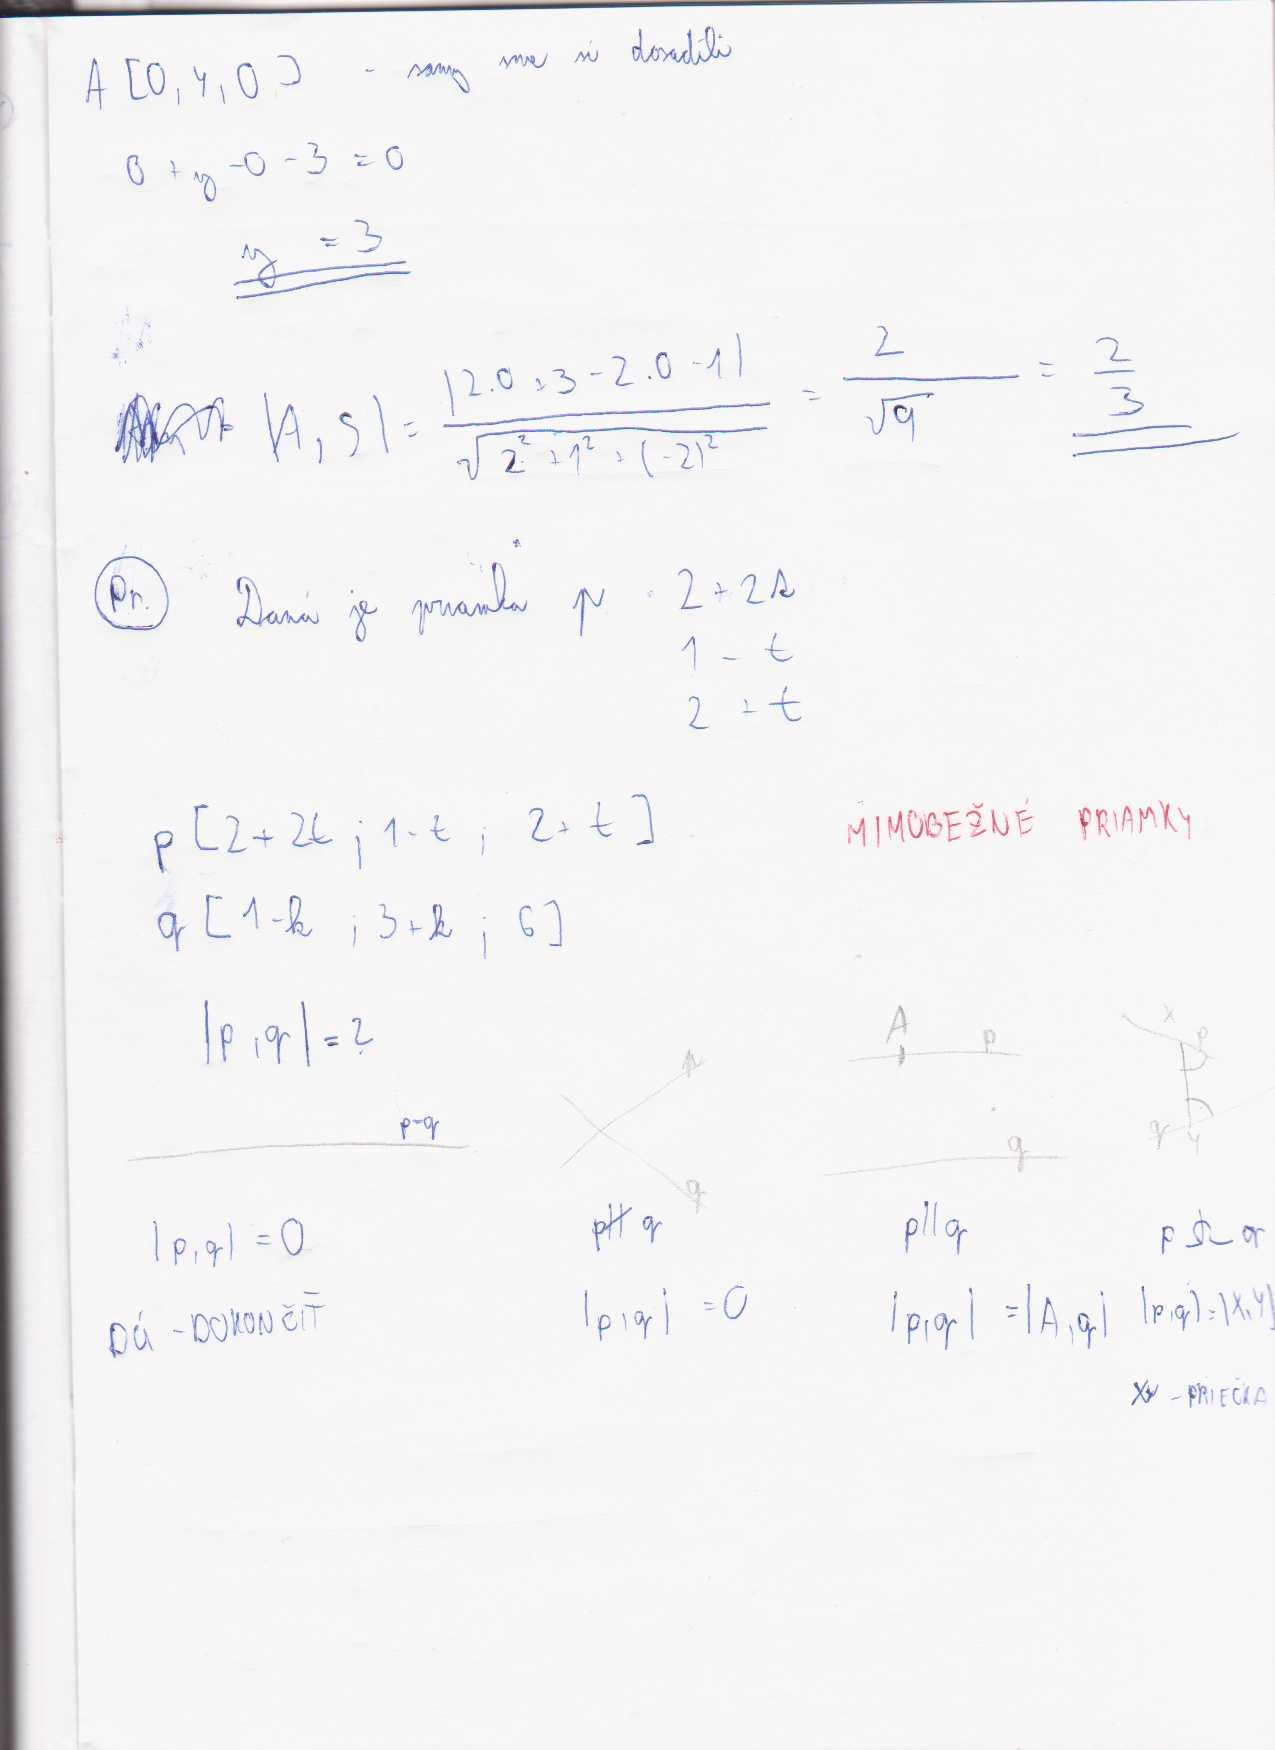 A [0, y, 0] - samy sme si dosadili
0 + y - 0 - 3 = 0
y = 3
|A, ρ| = |2.0 + 3 - 2.0 - 1| / √2² + 1² + (-2)² = 2 / √9 = 2 / 3
Pr. Daná je priamka p 2 + 2t
1 - t
2 + t
p [2 + 2t ; 1 - t ; 2 + t] MIMOBEŽNÉ PRIAMKY
q [1 - k ; 3 + k ; 6]
|p, q| = ?
A p x p
p=q p q q q y
|p, q| = 0 p∦q p||q p q
DÚ - DOKONČIŤ |p, q| = 0 |p, q| = |A, q| |p, q| = |X, Y|
XY - PRIEČKA